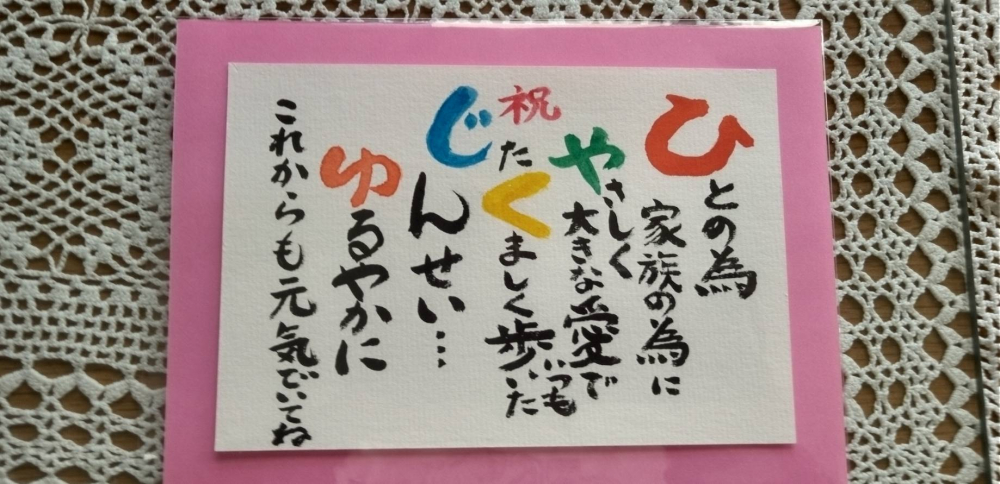 ひとの為
家族の為に
やさしく
大きな愛で
いつも
祝
たくましく歩いた
じんせい…
ゆるやかに
これからも元気でいてね